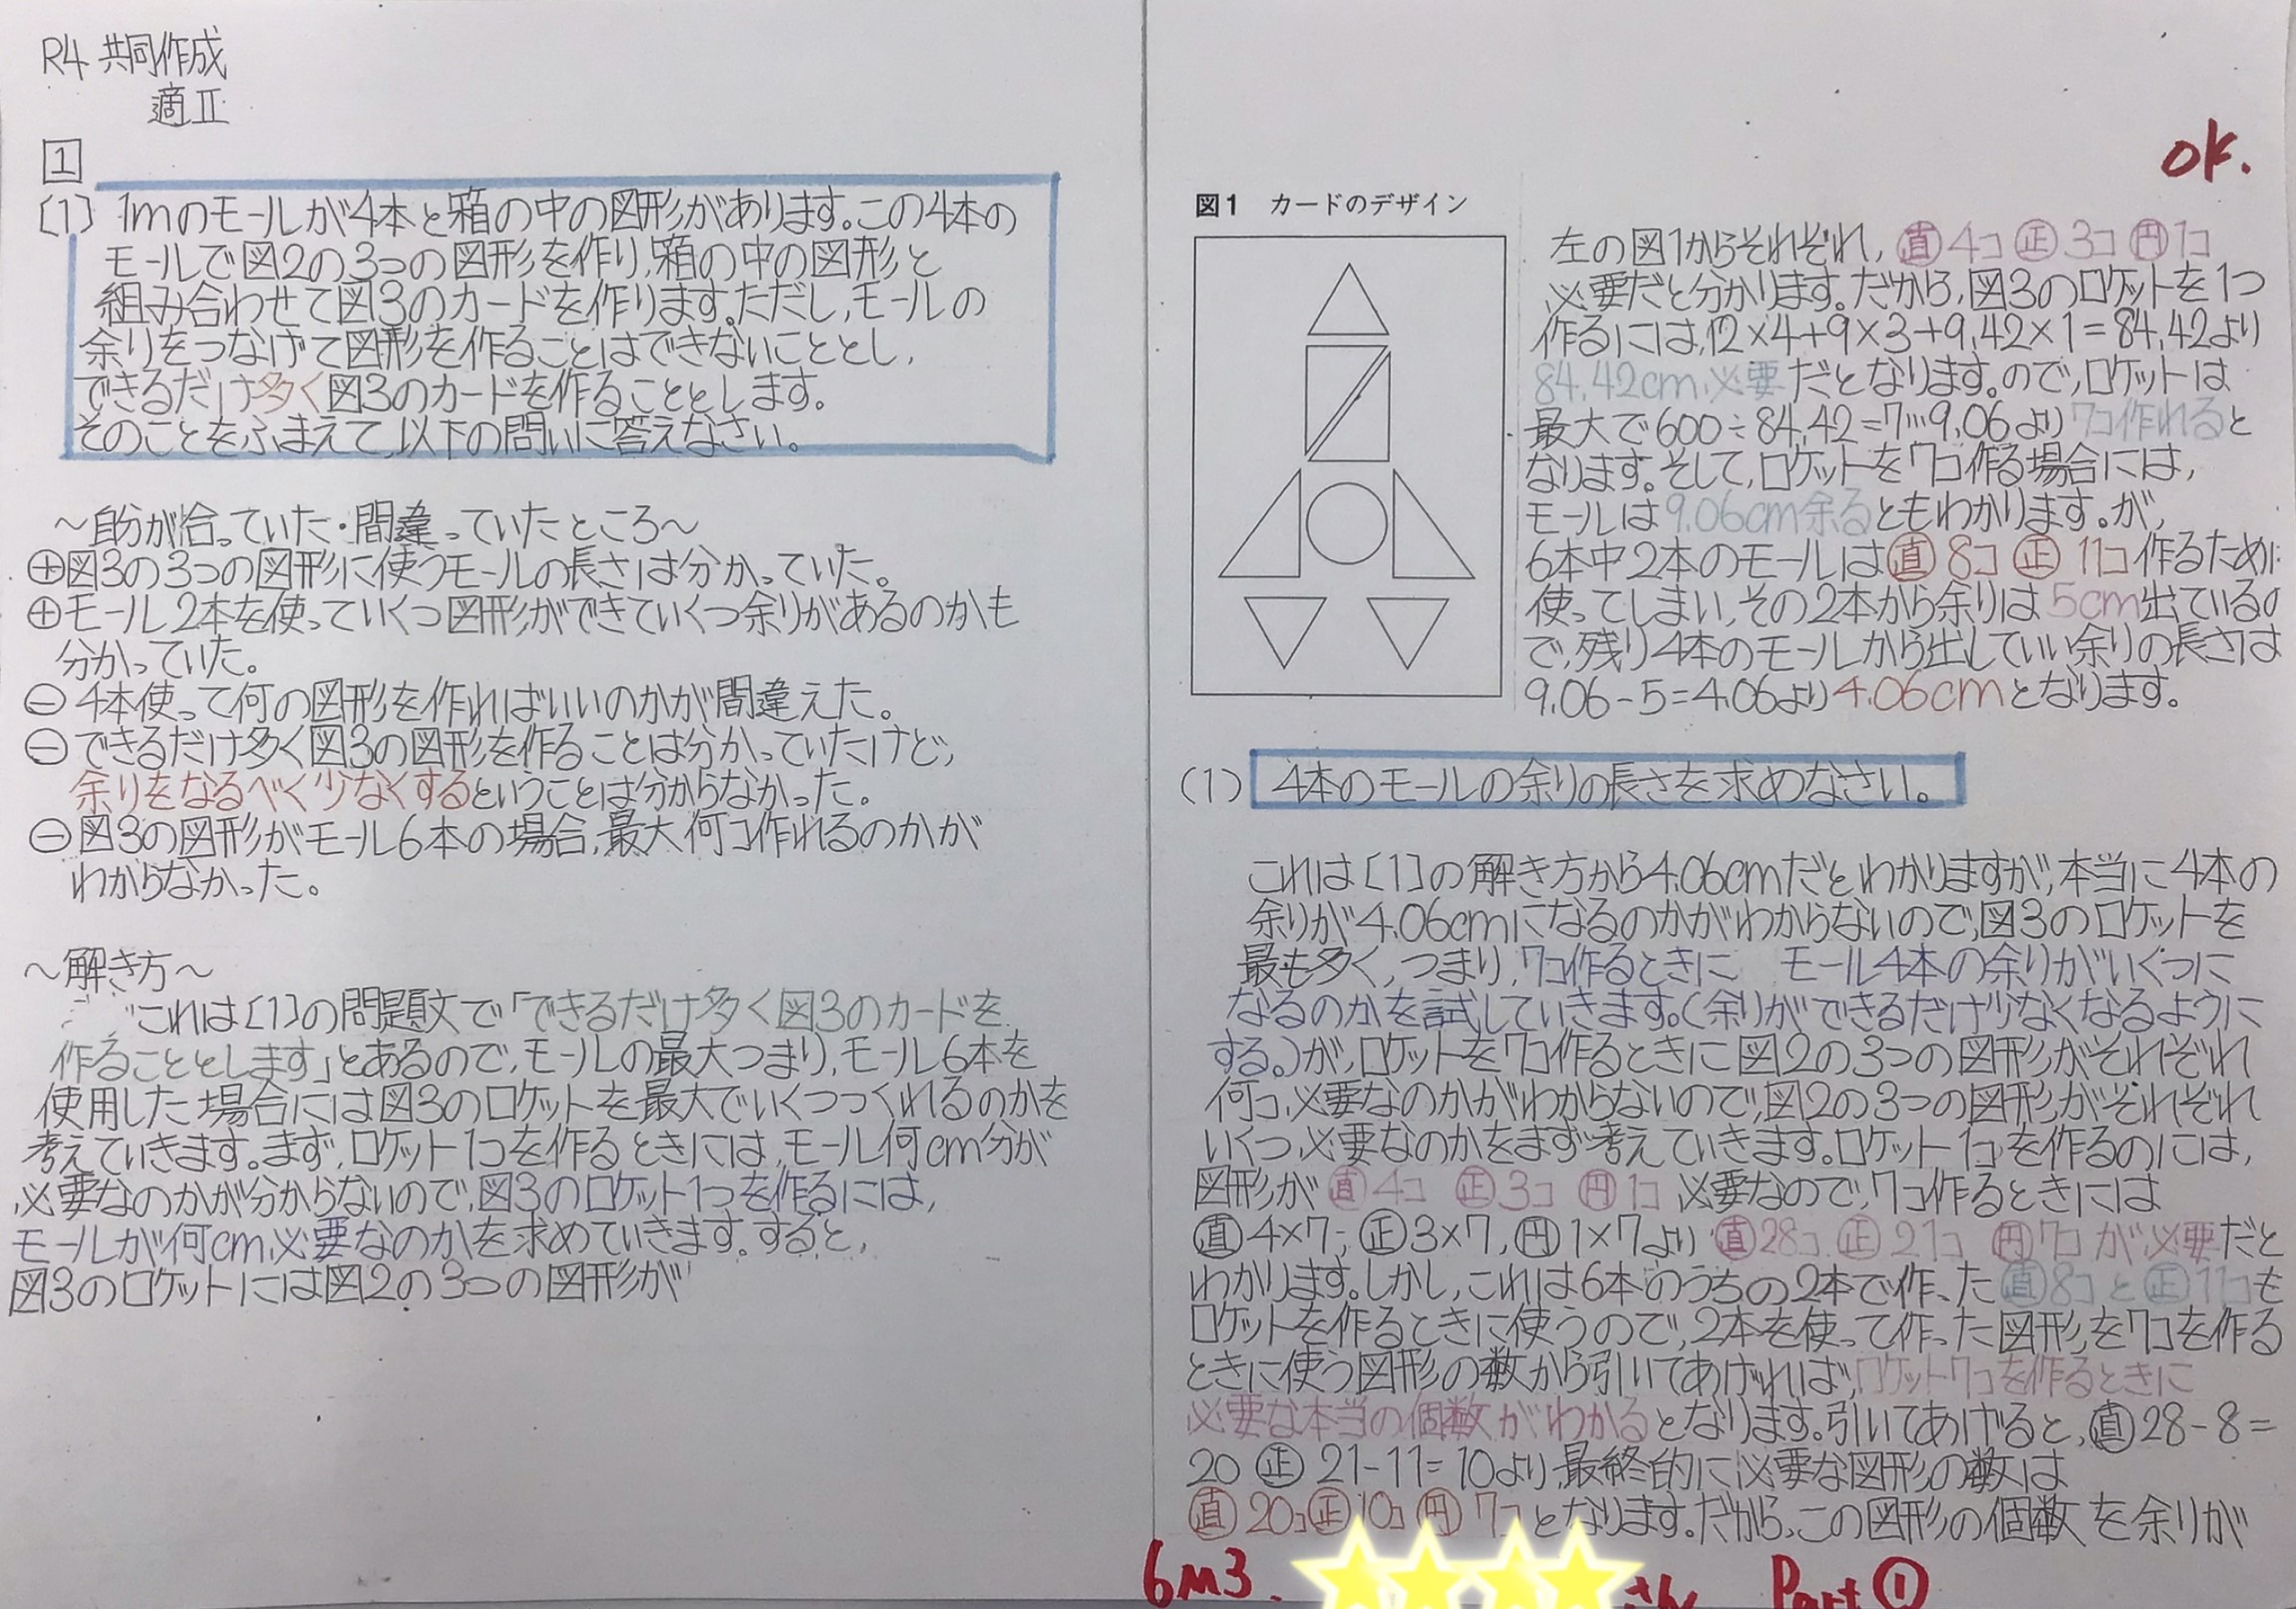 R4 共同作成
適Ⅱ
1
〔1〕 1mのモールが4本と箱の中の図形があります。この4本の
モールで図2の3つの図形を作り,箱の中の図形と
組み合わせて図3のカードを作ります。ただし,モールの
余りをつなげて図形を作ることはできないこととし,
できるだけ多く図3のカードを作ることとします。
そのことをふまえて,以下の問いに答えなさい。
～自分が合っていた・間違っていたところ～
⊕図3の3つの図形に使うモールの長さは分かっていた。
⊕モール2本を使っていくつ図形ができていくつ余りがあるのかも
分かっていた。
⊖ 4本使って何の図形を作ればいいのかが間違えた。
⊖ できるだけ多く図3の図形を作ることは分かっていたけど,
余りをなるべく少なくするということは分からなかった。
⊖ 図3の図形がモール6本の場合,最大何コ作れるのかが
わからなかった。
～解き方～
これは〔1〕の問題文で「できるだけ多く図3のカードを
作ることとします」とあるので,モールの最大つまり,モール6本を
使用した場合には図3のロケットを最大でいくつつくれるのかを
考えていきます。まず,ロケット1コを作るときには,モール何cm分が
必要なのかが分からないので,図3のロケット1つを作るには,
モールが何cm必要なのかを求めていきます。すると,
図3のロケットには図2の3つの図形が
ok.
図1 カードのデザイン
左の図1からそれぞれ, ㊢直 4コ ㊣ 3コ 円 1コ
必要だと分かります。だから,図3のロケットを1つ
作るには,12×4+9×3+9.42×1=84.42より
84.42cm必要だとなります。ので,ロケットは
最大で600÷84.42=7…9.06より7コ作れると
なります。そして,ロケットを7コ作る場合には,
モールは9.06cm余るともわかります。が,
6本中2本のモールは直 8コ ㊣ 11コ作るために
使ってしまい,その2本から余りは5cm出ているの
で,残り4本のモールから出していい余りの長さは
9.06-5=4.06より4.06cmとなります。
(1) 4本のモールの余りの長さを求めなさい。
これは〔1〕の解き方から4.06cmだとわかりますが,本当に4本の
余りが4.06cmになるのかがわからないので,図3のロケットを
最も多く,つまり,7コ作るときに モール4本の余りがいくつに
なるのかを試していきます。(余りができるだけ少なくなるように
する。)が,ロケットを7コ作るときに図2の3つの図形がそれぞれ
何コ必要なのかがわからないので,図2の3つの図形がそれぞれ
いくつ必要なのかをまず考えていきます。ロケット1コを作るのには,
図形が 直 4コ ㊣ 3コ 円 1コ 必要なので,7コ作るときには
直 4×7, ㊣ 3×7, 円 1×7より 直 28コ ㊣ 21コ 円 7コ が必要だと
わかります。しかし,これは6本のうちの2本で作った 直 8コと ㊣ 11コも
ロケットを作るときに使うので,2本を使って作った図形を7コを作る
ときに使う図形の数から引いてあげれば,ロケット7コを作るときに
必要な本当の個数がわかるとなります。引いてあげると, 直 28-8=
20 ㊣ 21-11=10より,最終的に必要な図形の数は
直 20コ ㊣ 10コ 円 7コ となります。だから,この図形の個数を余りが
6M3. Part ①